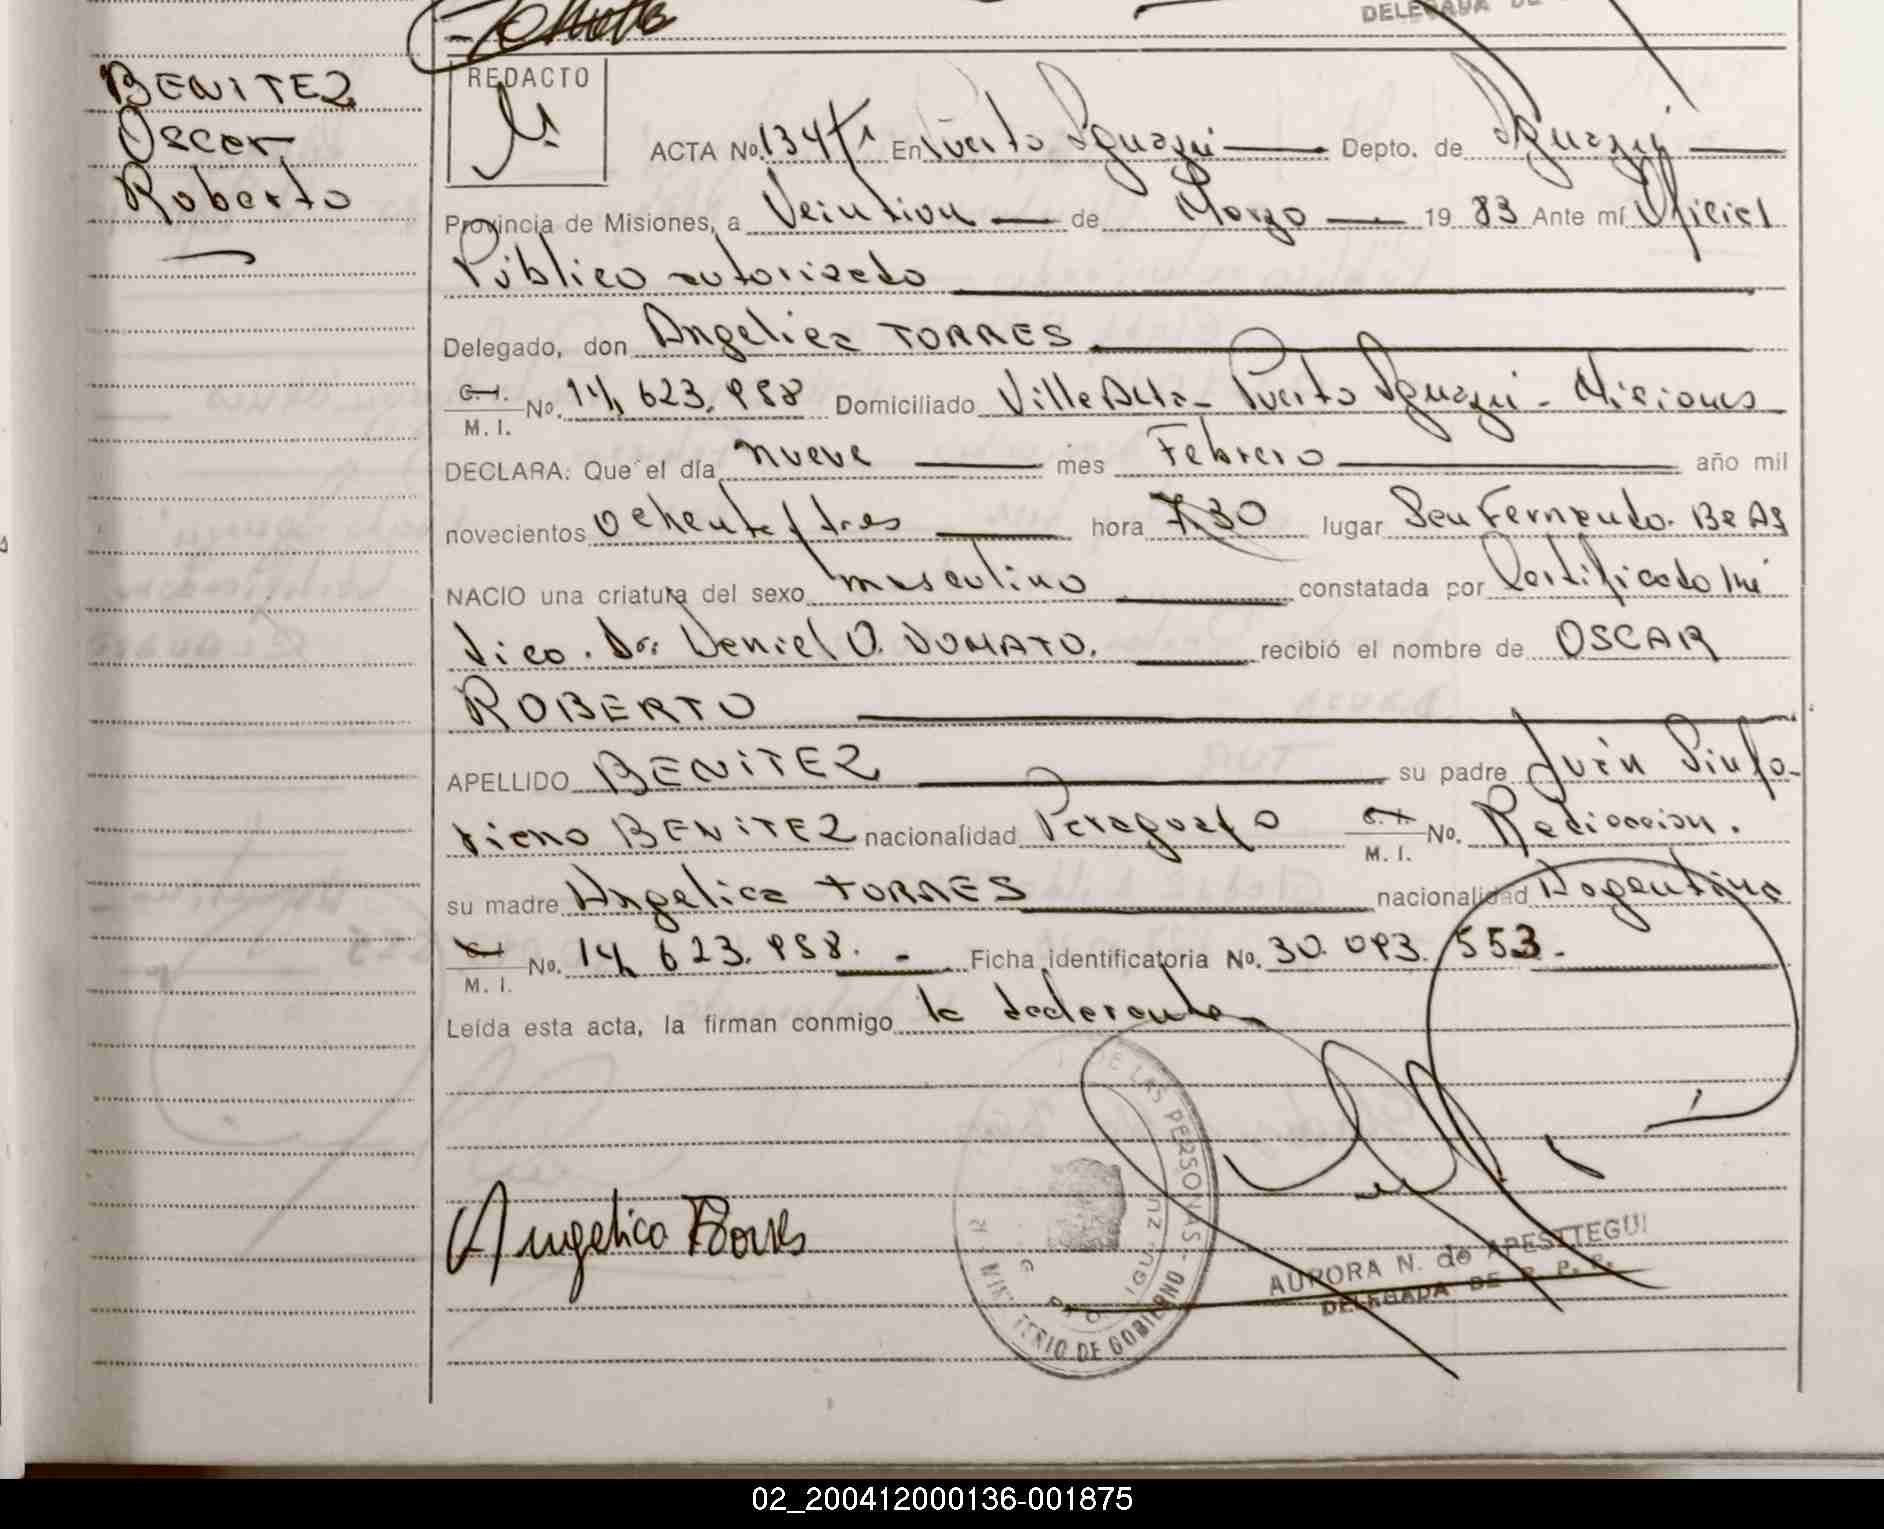 DELEGADA DE
BENITEZ
Oscar
Roberto
REDACTO
ACTA No. 134 En Puerto Iguazú Depto. de Iguazú
Provincia de Misiones, a Veintiun de Marzo 1983 Ante mí Oficial
Público autorizado
Delegado, don Angelica TORRES
C.I. M. I. No. 14,623.958 Domiciliado Villa Alta - Puerto Iguazú - Misiones
DECLARA: Que el día nueve mes Febrero año mil
novecientos ochenta y tres hora 7.30 lugar San Fernando. Bs As
NACIO una criatura del sexo masculino constatada por Certificado Mé
dico. Dr. Daniel O. DONATO. recibió el nombre de OSCAR
ROBERTO
APELLIDO BENITEZ su padre Juan Sinfo-
riano BENITEZ nacionalidad Paraguayo C.I. M. I. No. Radicacion.
su madre Angelica TORRES nacionalidad Argentina
C.I. M. I. No. 14,623.958. - Ficha identificatoria No. 30.093.553.-
Leída esta acta, la firman conmigo la declarante
Angelica Torres
DE LAS PERSONAS - MINISTERIO DE GOBIERNO
AURORA N. de APESTTEGUI
DELEGADA DE R. P. P.
02_200412000136-001875